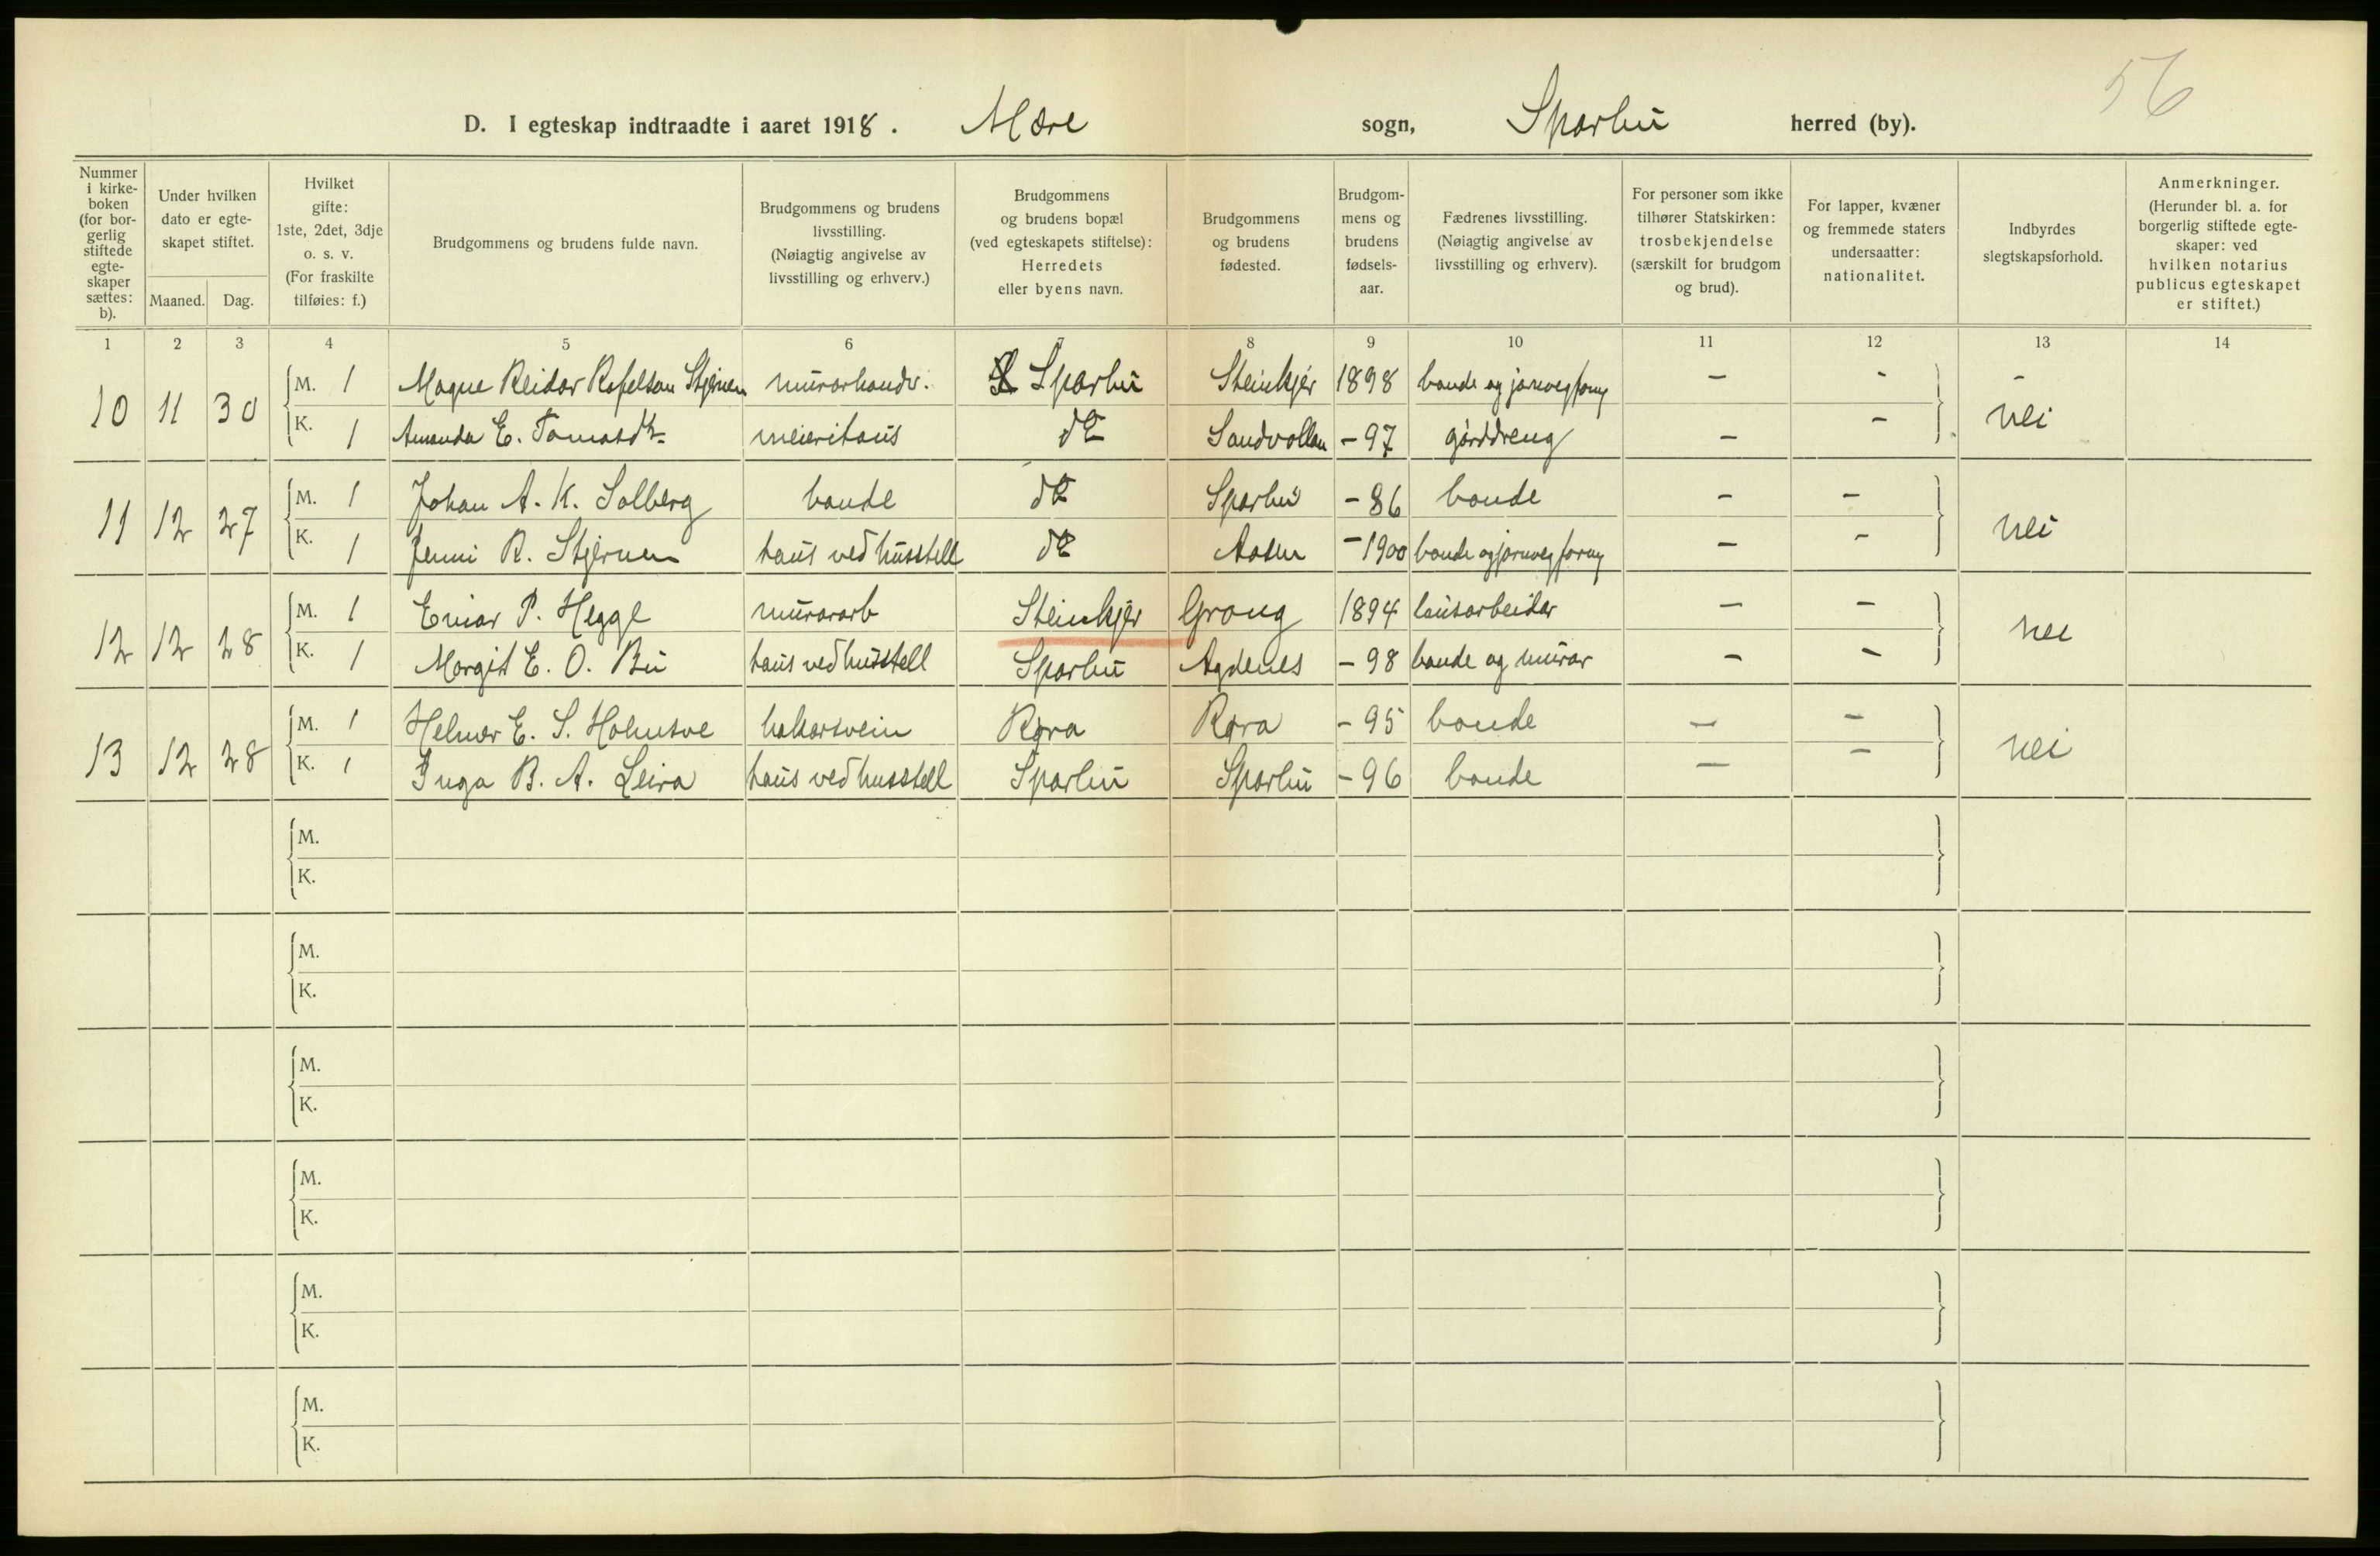 56
D. I egteskap indtraadte i aaret 1918. Mære sogn, Sparbu herred (by).
Nummer i kirke-boken (for bor-gerlig stiftede egte-skaper sættes: b).
Under hvilken dato er egte-skapet stiftet.
Maaned. Dag.
Hvilket gifte: 1ste, 2det, 3dje o. s. v. (For fraskilte tilføies: f.)
Brudgommens og brudens fulde navn.
Brudgommens og brudens livsstilling. (Nøiagtig angivelse av livsstilling og erhverv.)
Brudgommens og brudens bopæl (ved egteskapets stiftelse): Herredets eller byens navn.
Brudgommens og brudens fødested.
Brudgom-mens og brudens fødsels-aar.
Fædrenes livsstilling. (Nøiagtig angivelse av livsstilling og erhverv).
For personer som ikke tilhører Statskirken: trosbekjendelse (særskilt for brudgom og brud).
For lapper, kvæner og fremmede staters undersaatter: nationalitet.
Indbyrdes slegtskapsforhold.
Anmerkninger. (Herunder bl. a. for borgerlig stiftede egte-skaper: ved hvilken notarius publicus egteskapet er stiftet.)
1 2 3 4 5 6 7 8 9 10 11 12 13 14
10 11 30 M. 1 Magne Reidar Rafelson Stjernen murarhandv. Sparbu Steinkjer 1898 bonde og jarnvegform - - -
K. 1 Amanda E. Tomasdtr meieritaus do Sandvollan -97 gårddreng - - nei
11 12 27 M. 1 Johan A. K. Solberg bonde do Sparbu -86 bonde - -
K. 1 Jenni R. Stjernen taus ved husstell do Aasen -1900 bonde og jarnvegform - - nei
12 12 28 M. 1 Einar P. Hegge murararb Steinkjer Grong 1894 lausarbeidar - -
K. 1 Margit E. O. Bu taus ved husstell Sparbu Agdenes -98 bonde og murar - - nei
13 12 28 M. 1 Helmer E. S. Holmsve bakarsvein Røra Røra -95 bonde - -
K. 1 Inga B. A. Leira taus ved husstell Sparbu Sparbu -96 bonde - - nei
M.
K.
M.
K.
M.
K.
M.
K.
M.
K.
M.
K.